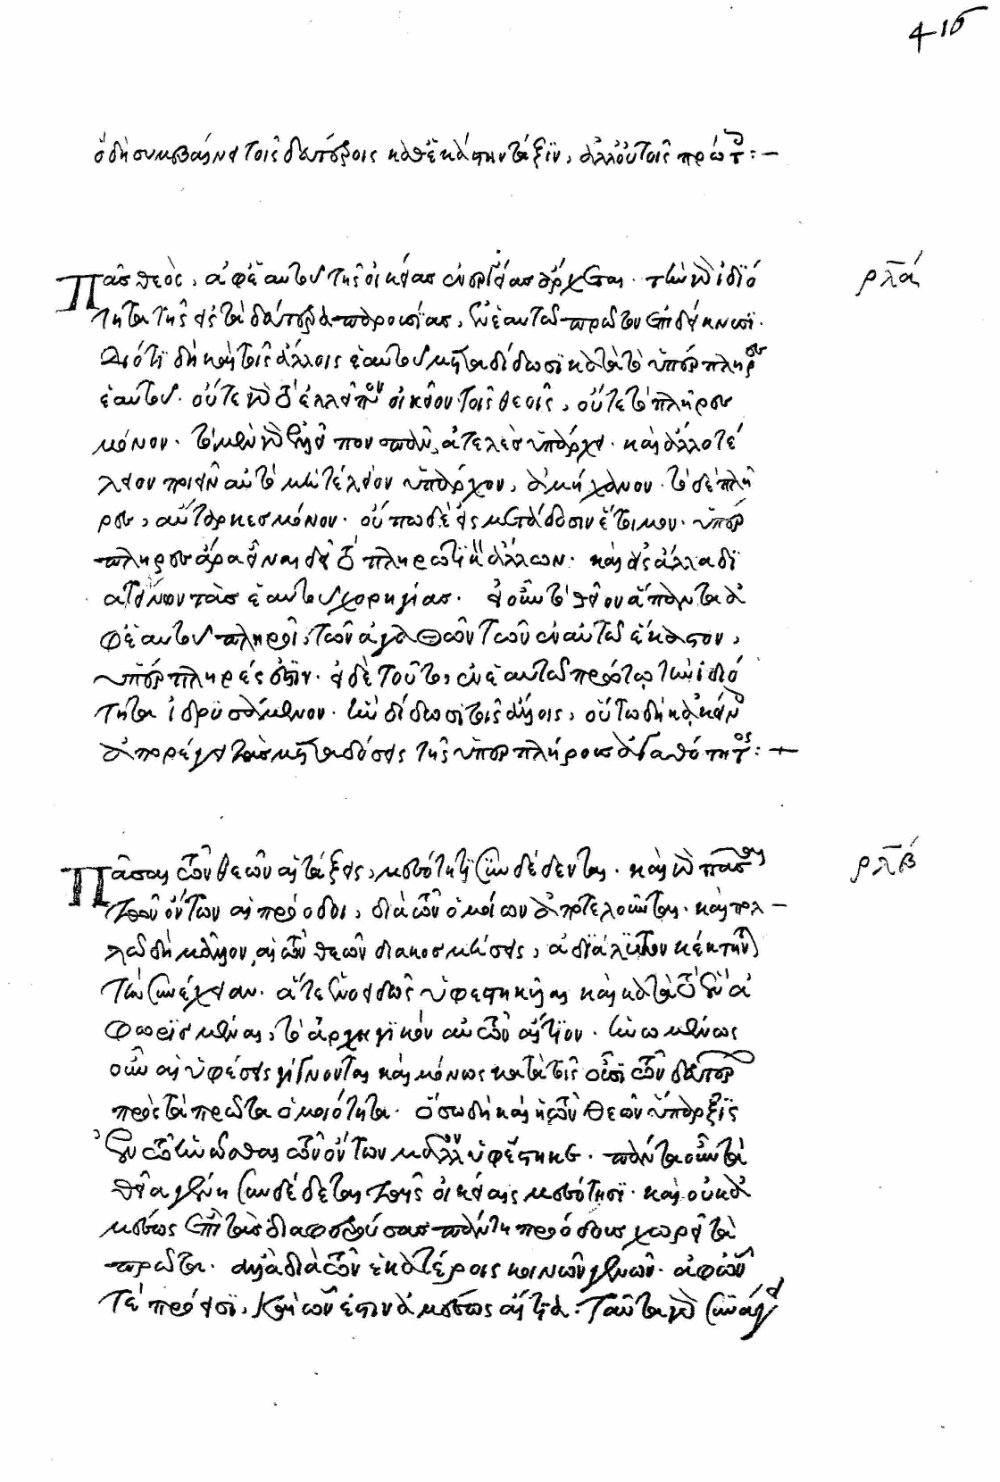 415
ὃ δὴ συμβαίνει τοῖς δευτέροις καθ' ἑκάστην τάξιν, ἀλλ' οὐ τοῖς πρώτοις:—
ρλα
Πᾶς θεὸς, ἀφ' ἑαυτοῦ τῆς οἰκείας ἐνεργείας ἄρχεται. τὴν γὰρ ἰδιό
τητα τῆς εἰς τὰ δεύτερα παρουσίας, ἐν ἑαυτῷ πρῶτον ἐπιδείκνυσι.
Διότι δὴ καὶ τοῖς ἄλλοις ἑαυτοῦ μεταδίδωσι κατὰ τὸ ὑπέρπληρες
ἑαυτοῦ. οὔτε γὰρ τὸ ἐλλεῖπον οἰκεῖον τοῖς θεοῖς, οὔτε τὸ πλῆρες
μόνον. τὸ μὲν γὰρ ἐλλεῖπον πᾶν, ἀτελὲς ὑπάρχει. καὶ ἄλλο τέ
λειον ποιεῖν αὐτὸ μὴ τέλειον ὑπάρχον, ἀμήχανον. τὸ δὲ πλῆ
ρες, αὔταρκες μόνον. οὔπω δὲ εἰς μετάδοσιν ἕτοιμον. ὑπέρ
πληρες ἄρα εἶναι δεῖ τὸ πληρωτικὸν ἄλλων. καὶ εἰς ἄλλα δι
ατεῖνον τὰς ἑαυτοῦ χορηγίας. εἰ οὖν τὸ θεῖον ἅπαντα ἀ
φ' ἑαυτοῦ πληροῖ, τῶν ἀγαθῶν τῶν ἐν αὑτῷ ἕκαστον,
ὑπέρπληρές ἐστιν. εἰ δὲ τοῦτο, ἐν ἑαυτῷ πρώτῳ τὴν ἰδιό
τητα ἱδρυσάμενον. ὧν δίδωσι τοῖς ἄλλοις, οὕτω δὴ κἀκείνοις
ἐπορέγει τὰς μεταδόσεις τῆς ὑπερπλήρους ἀγαθότητος:—
ρλβ
Πᾶσαι τῶν θεῶν αἱ τάξεις, μεσότητι συνδέδενται. καὶ γὰρ πᾶσαι
τῶν ὄντων αἱ πρόοδοι, διὰ τῶν ὁμοίων ἀποτελοῦνται. καὶ πολ—
λῷ δὴ μᾶλλον, αἱ τῶν θεῶν διακοσμήσεις, ἀδιάλυτον κέκτηνται
τὴν συνέχειαν. ἅτε ἑνοειδῶς ὑφεστηκυῖαι καὶ κατὰ τὸ ἓν ἀ
φωρισμέναι, τὸ ἀρχηγικὸν αὐτῶν αἴτιον. ἡνωμένως
οὖν αἱ ὑφέσεις γίγνονται καὶ μόνως κατὰ τοῖς οὖσι τῶν δευτέρων
πρὸς τὰ πρῶτα ὁμοιότητα. ὅσῳ δὴ καὶ ἡ τῶν θεῶν ὕπαρξις
ἐν τῷ ἡνῶσθαι τῶν ὄντων μᾶλλον ὑφέστηκε. πάντα οὖν τὰ
θεῖα γένη συνδέδεται ταῖς οἰκείαις μεσότησι. καὶ οὐκ ἀ
μέσως ἐπὶ τὰς διαφερούσας πάντῃ προόδους χωρεῖ τὰ
πρῶτα. ἀλλὰ διὰ τῶν ἑκατέροις κοινῶν γενῶν. ἀφ' ὧν
τε πρόεισι, καὶ ὧν ἐστιν ἀμέσως αἴτια. ταῦτα γὰρ συνάγει